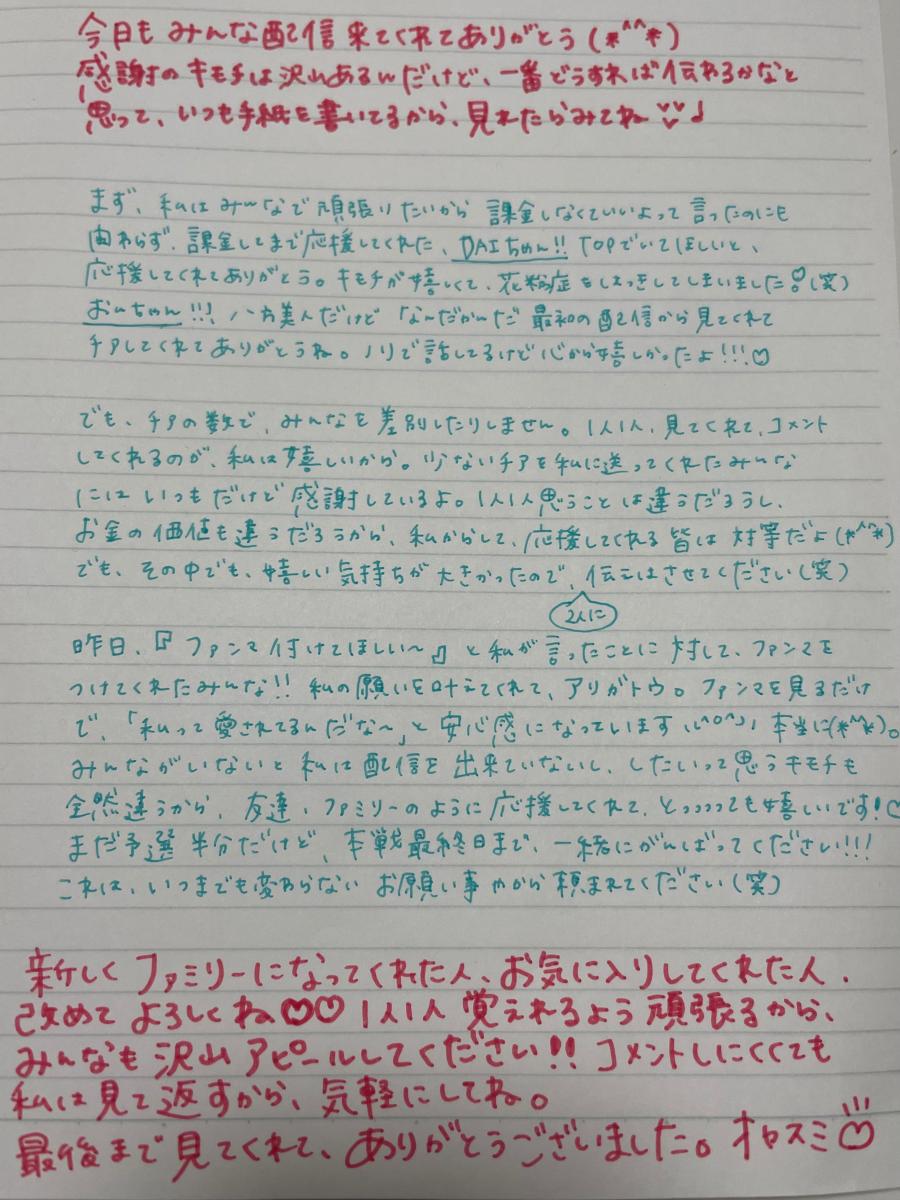 今日も みんな配信 来てくれてありがとう (*^^*)
感謝の キモチは 沢山あるんだけど、一番どうすれば 伝わるかなと
思って、いつも手紙を書いてるから、見れたらみてね♡♪
まず、私は みんなで 頑張りたいから 課金しなくていいよって 言ったのにも
関わらず、課金してまで応援してくれた、DAIちゃん!! TOPでいてほしいと、
応援してくれてありがとう。キモチが嬉しくて、花粉症をしてしまいました♡(笑)
おーちゃん!!! 八方美人だけど なんだかんだ 最初の配信から見てくれて
チアしてくれて ありがとうね。ノリで話してるけど 心から嬉しかったよ!!!♡
でも、チアの数で、みんなを差別したりしません。1人1人、見てくれて、コメント
してくれるのが、私は嬉しいから。少ないチアを私に送ってくれたみんな
には いつもだけど 感謝しているよ。1人1人思うことは違うだろうし、
お金の価値も違うだろうから、私からして、応援してくれる 皆は 対等だよ(*^^*)
でも、その中でも、嬉しい気持ちが大きかったので、伝えはさせてください(笑)
2人に
昨日、『ファンマ付けてほしい〜』と私が言ったことに対して、ファンマを
つけてくれたみんな!! 私の願いを叶えてくれて、アリガトウ。ファンマを見るだけ
で、「私って愛されてるんだな〜」と安心感になっています\(^o^)/ 本当に(*^^*)。
みんながいないと 私は配信を出来ていないし、したいって思うキモチも
全然違うから、友達・ファミリーのように応援してくれて、とっっっっても嬉しいです!♡
まだ予選半分だけど、本戦最終日まで、一緒にがんばってください!!!
これは、いつまでも変わらない お願い事やから 頼まれてください(笑)
新しく ファミリーになってくれた人、お気に入りしてくれた人、
改めて よろしくね♡♡ 1人1人 覚えれるよう 頑張るから、
みんなも 沢山 アピールしてください!! コメントしにくくても
私は見て返すから、気軽にしてね。
最後まで見てくれて、ありがとうございました。オヤスミ♡